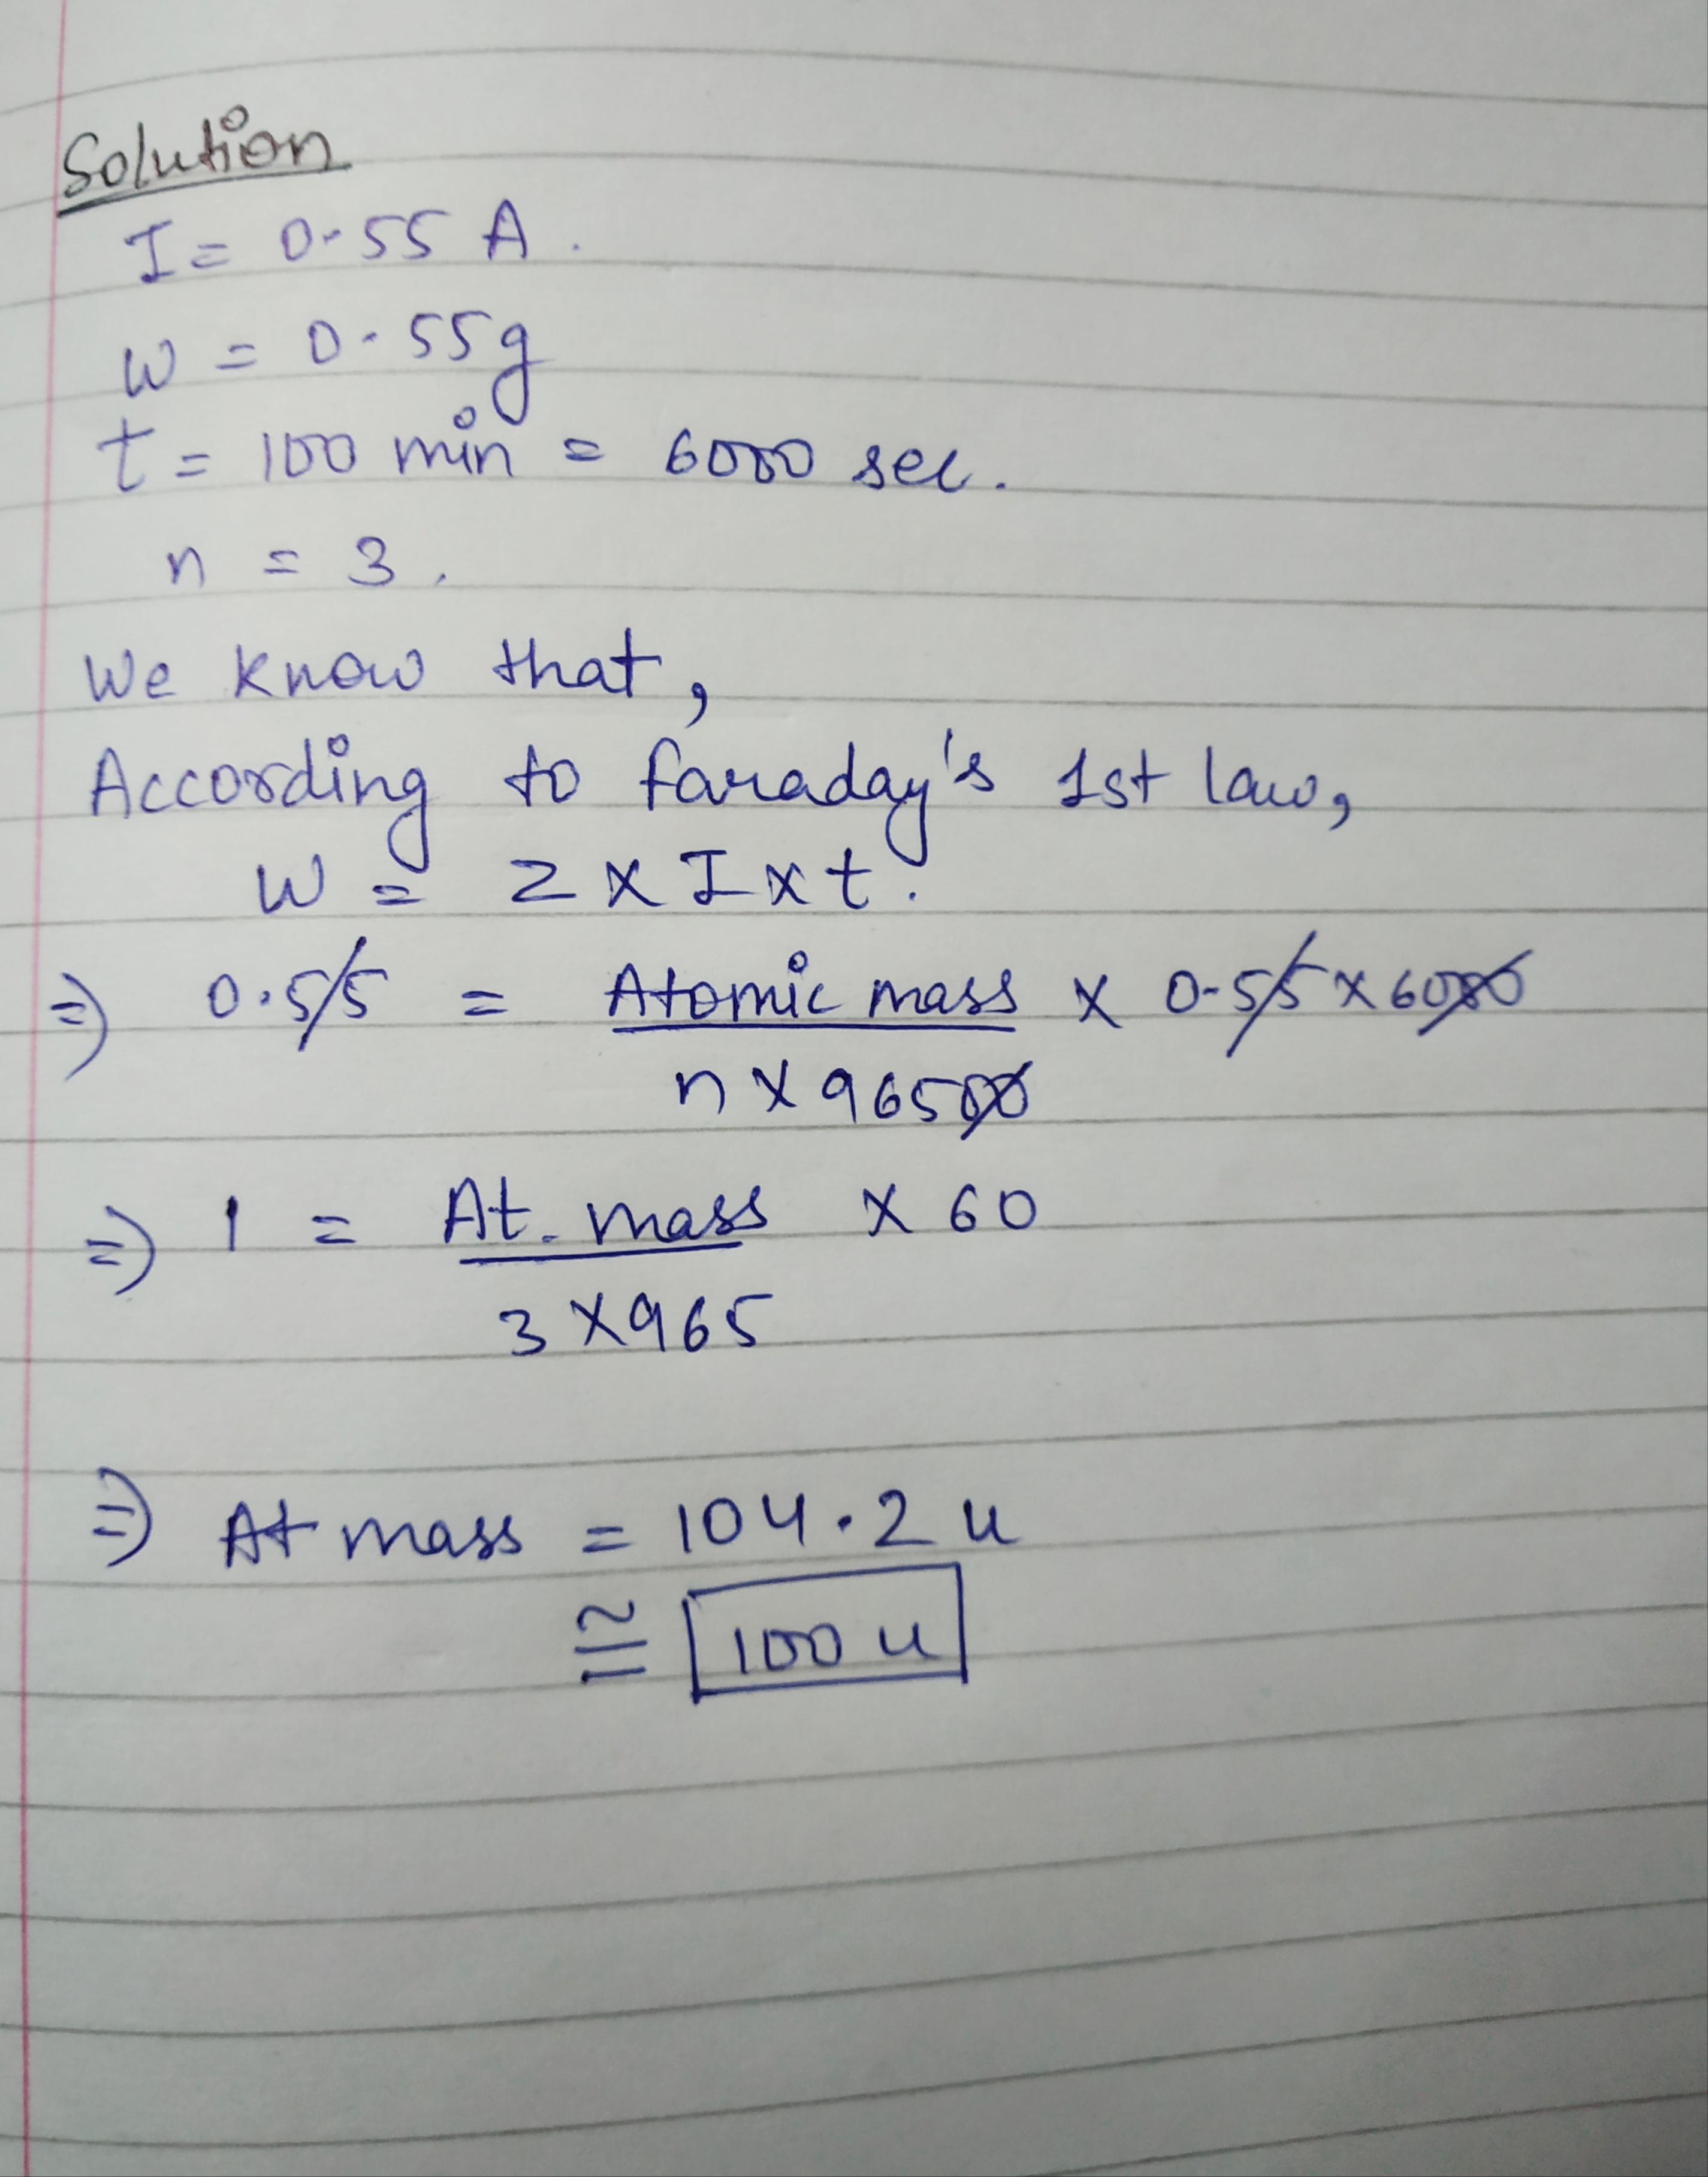 Solution
I = 0.55 A.
W = 0.55g
t = 100 min = 6000 sec.
n = 3.
We know that,
According to faraday's 1st law,
W = Z x I x t.
⇒ 0.55 = Atomic mass x 0.55 x 6000
n x 96500
⇒ 1 = At. mass x 60
3 x 965
⇒ At mass = 104.2 u
≅ 100 u